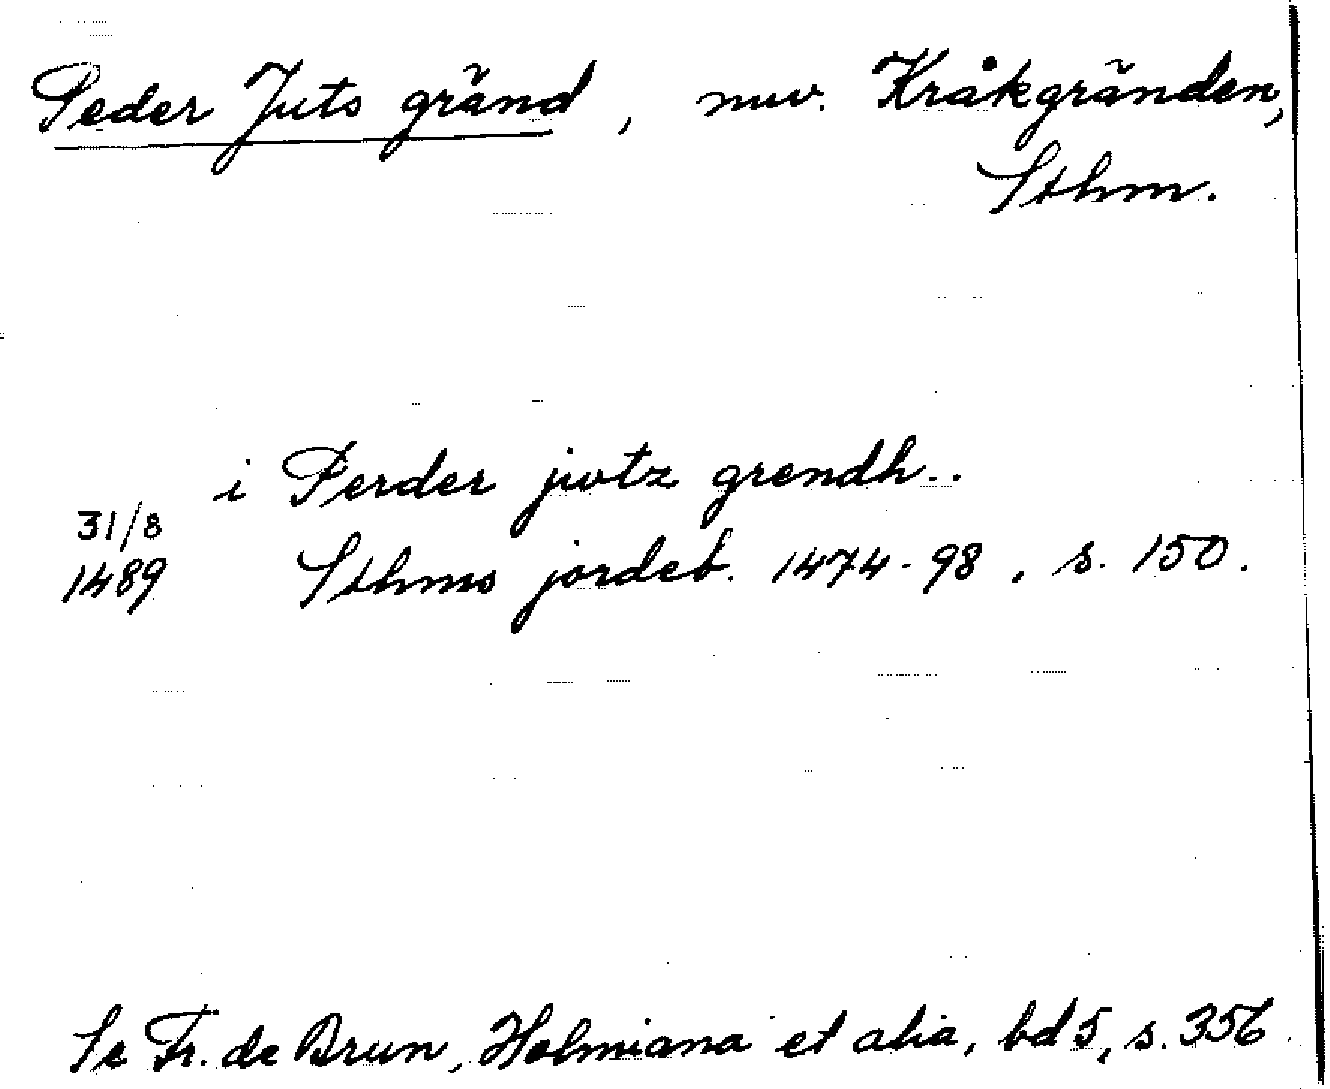 Peder Juts gränd, nuv. Kråkgränden,
Sthm.
i Perder jwtz grendh..
31/8
1489 Sthms jordeb. 1474-98, s. 150.
Se Fr. de Brun, Holmiana et alia, bd 5, s. 356.